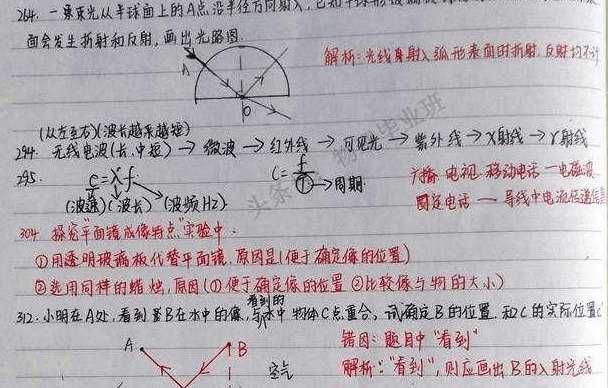 264. 一束束光从半球面上的A点沿半径方向射入,
面会发生折射和反射,画出光路图.
解析:光线 射入弧形表面时折射.反射均不计
A
O
(从左至右)(波长越来越短)
294. 无线电波(长.中短) → 微波 → 红外线 → 可见光 → 紫外线 → X射线 → γ射线
295. c=λf
C= f ① → 周期
广播.电视.移动电话一电磁波
(波速)(波长)(波频Hz)
固定电话一 导线中电流传递信息
304. 探究"平面镜成像特点"实验中:
①用透明玻璃板代替平面镜.原因是(便于确定像的位置)
②选用同样的蜡烛,原因(①便于确定像的位置 ②比较像与物的大小)
看到的
312. 小明在A处,看到 B在水中的像,与水中物体C点重合,试确定B的位置.和C的实际位置C'
错因:题目中"看到"
A
B
空气
解析:"看到",则应画出B的入射光线